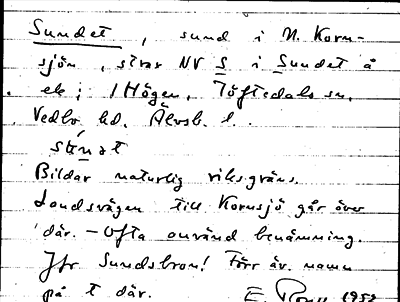 Sundet, sund i N. Korn-
sjön, strax NV S i Sundet å
ek; 1 Högen, Töftedals sn,
Vedbo hd. Älvsb. l.
Bildar naturlig riksgräns.
Landsvägen till Kornsjö går över
där. - Ofta använd benämning.
Jfr Sundsbron! Förr äv. namn
på t där. E. 1952